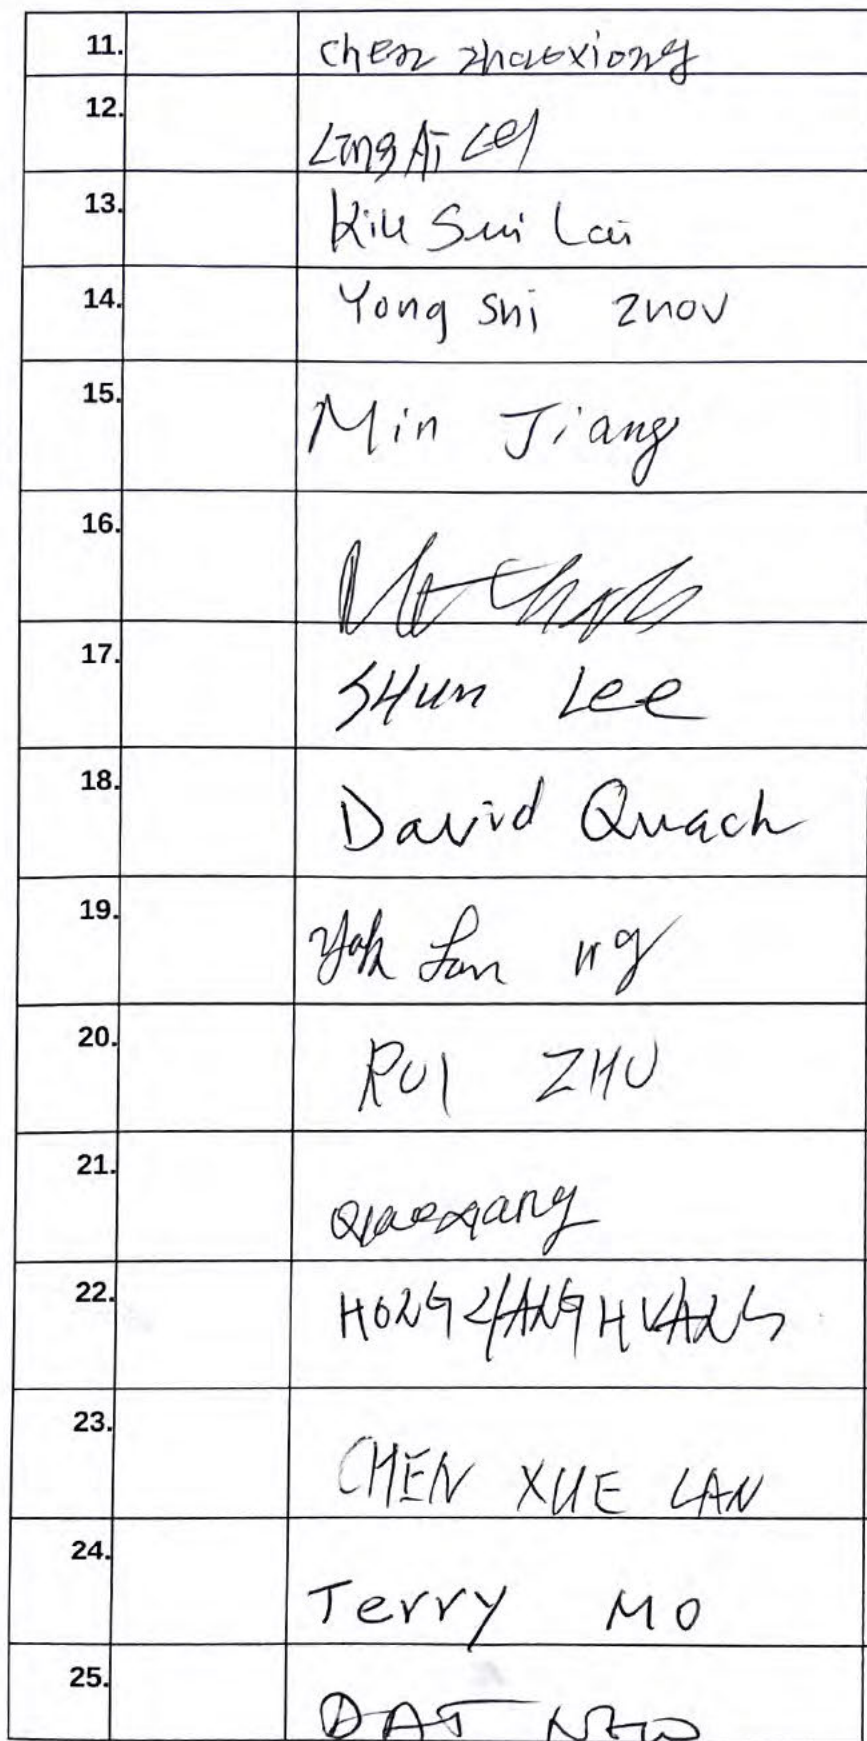 11. Chen zhaoxiong
12. Ling Ai Lei
13. Kiu Sui Lai
14. Yong Shi Zhov
15. Min Jiang
16.
17. SHun Lee
18. David Quach
19. Yok Lan ng
20. RUI ZHU
21.
22. HONG HUANG
23. CHEN XUE LAN
24. Terry Mo
25. DAT